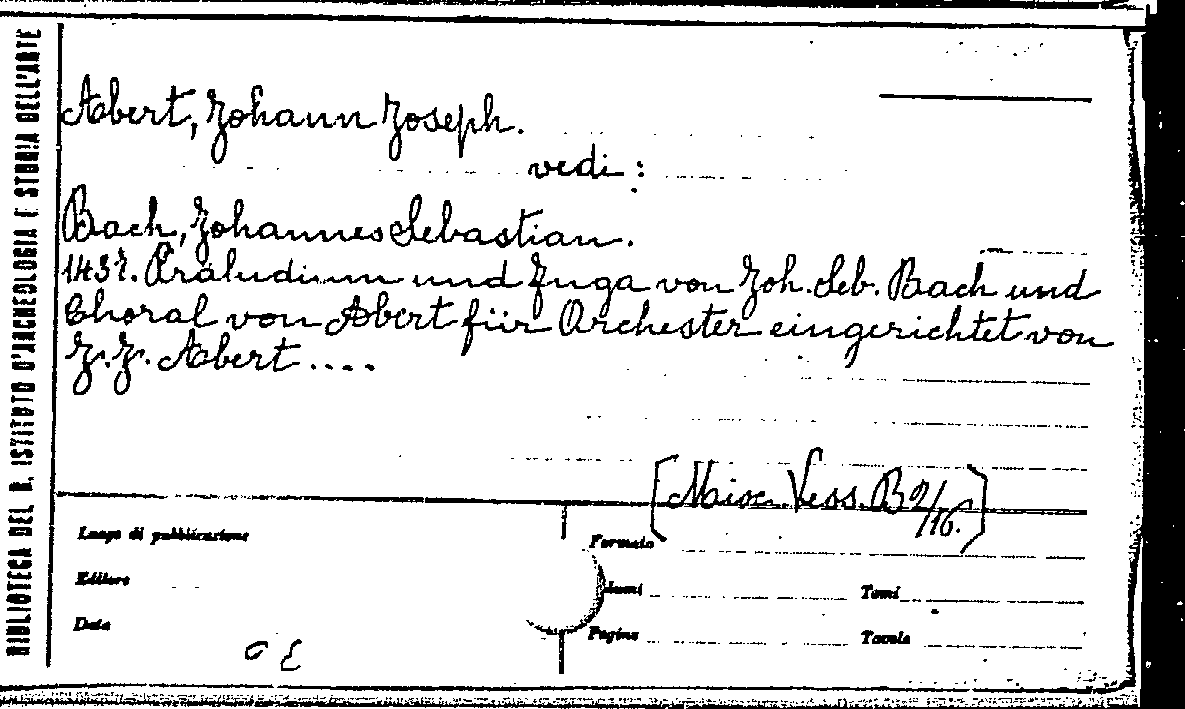 BIBLIOTECA DEL R. ISTITUTO D'ARCHEOLOGIA E STORIA DELL'ARTE
Abert, Johann Joseph.
vedi :
Bach, Johannes Sebastian.
1437. Präludium und Fuga von Joh. Seb. Bach und
Choral von Abert für Orchester eingerichtet von
J. J. Abert ....
[ Vess. B 9/16. ]
Luogo di pubblicazione
Formato
Editore
lumi
Tomi
Data
Pagine
Tavole